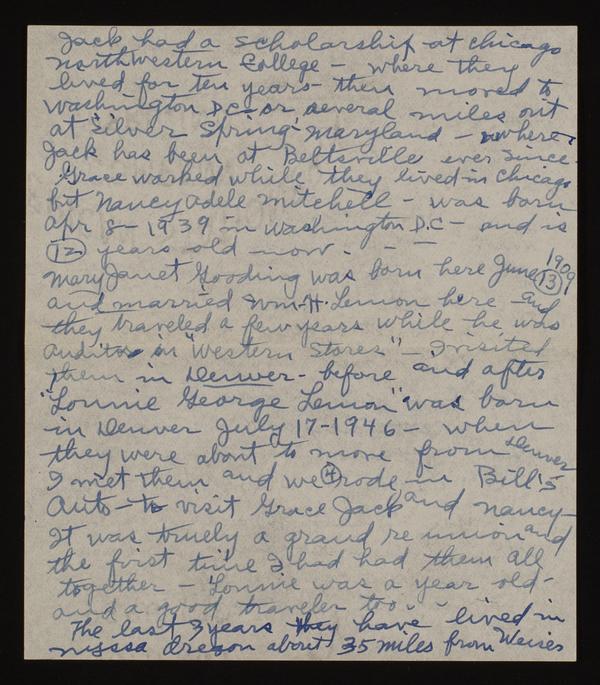 Jack had a scholarship at Chicago
Northwestern College - where they
lived for ten years - then moved to
Washington D.C. or several miles out
at "Silver Spring" Maryland - where
Jack has been at Beltsville ever since.
Grace worked while they lived in Chicago
but Nancy Adele Mitchell - was born
Apr 8 - 1939 in Washington D.C - and is
12 years old now. - -
Mary Janet Gooding was born here June 13 1909
and married Wm. H. Lemon here - and
they traveled a few years while he was
auditor in "Western Stores" - I visited
them in Denver - before and after
"Lonnie George Lemon" was born
in Denver July 17 - 1946 - when
they were about to move from Denver
I met them and we 4 rode in Bill's
Auto - to visit Grace Jack and Nancy -
It was truely a grand re union and
the first time I had had them all
together - Lonnie was a year old -
and a good traveler too - -
The last 3 years they have lived in
Nyssa Oregon about 35 miles from Weiser